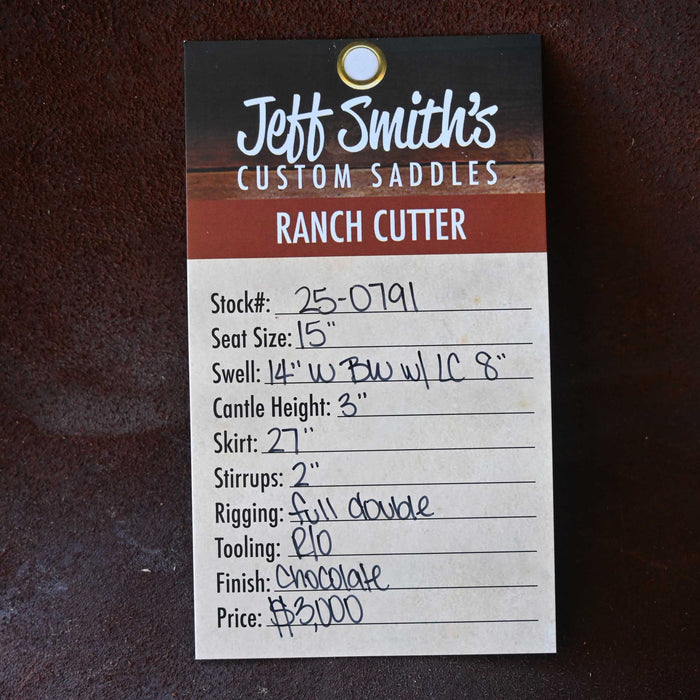 Jeff Smith's
CUSTOM SADDLES
RANCH CUTTER
Stock#: 25-0791
Seat Size: 15"
Swell: 14" W BW w/ LC 8"
Cantle Height: 3"
Skirt: 27"
Stirrups: 2"
Rigging: full double
Tooling: R/O
Finish: Chocolate
Price: $3,000